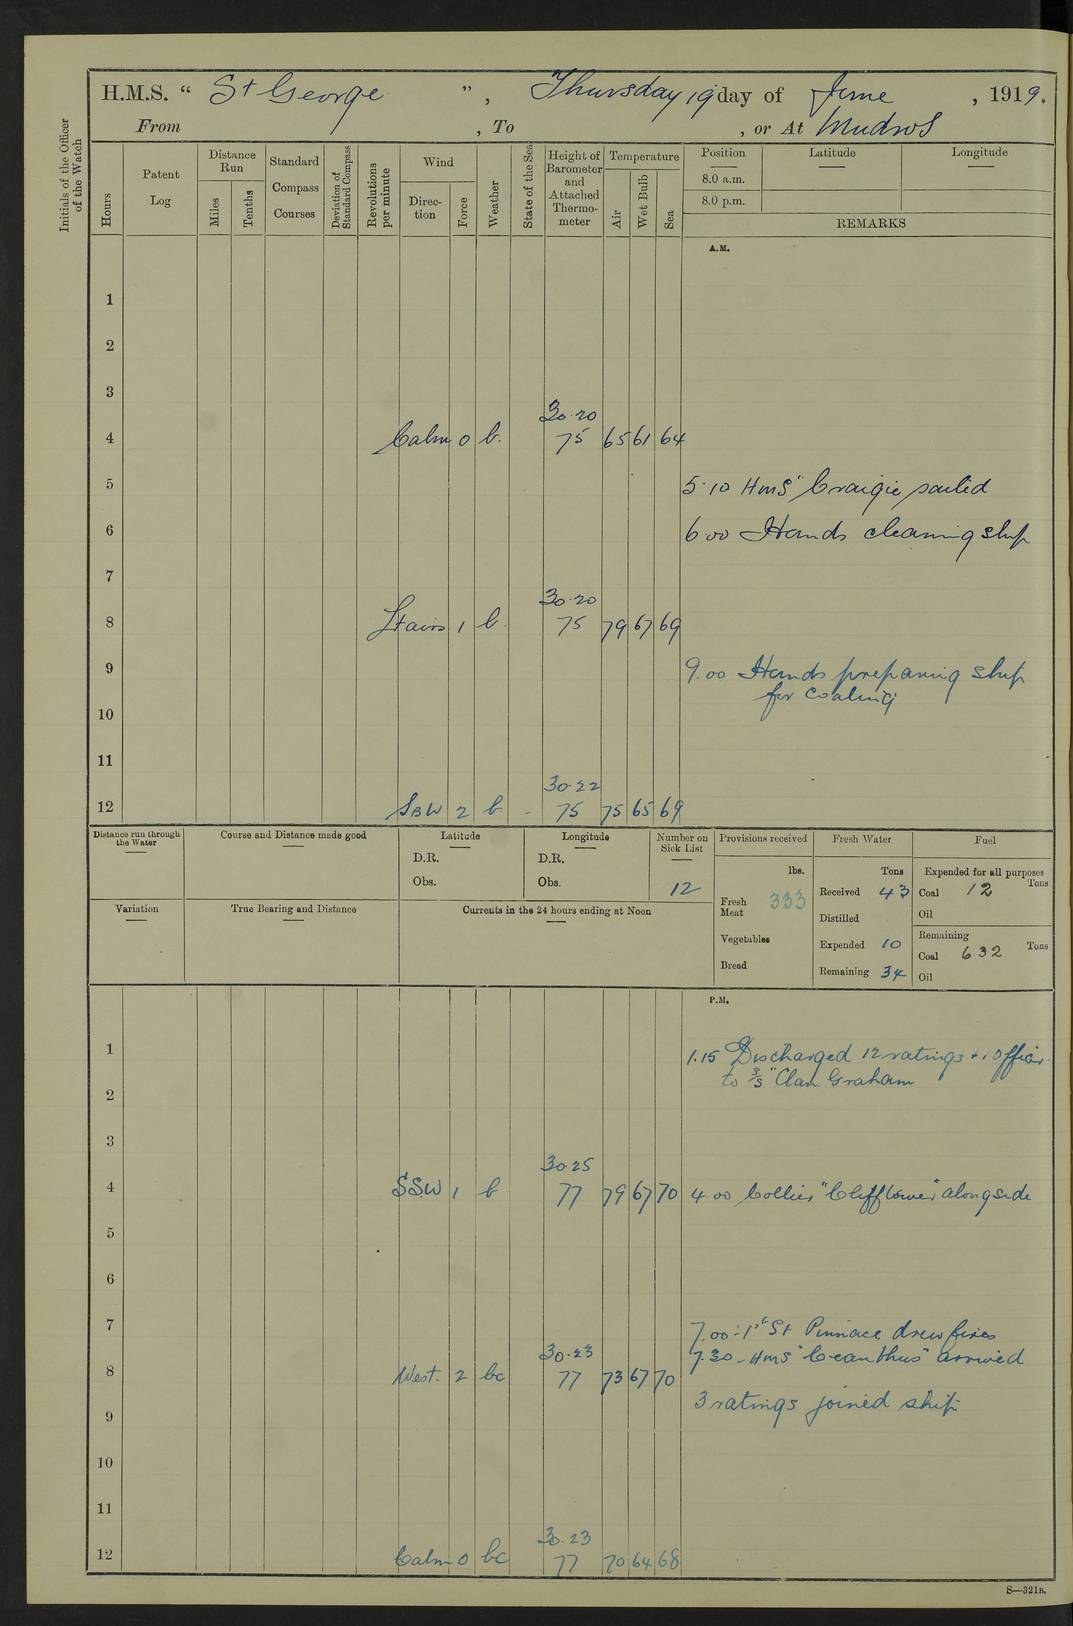 H.M.S. “ St George ”, Thursday 19 day of June , 1919.
From , To , or At Mudros
Initials of the Officer of the Watch
Hours
Patent Log
Distance Run
Miles
Tenths
Standard Compass Courses
Deviation of Standard Compass
Revolutions per minute
Wind
Direction
Force
Weather
State of the Sea
Height of Barometer and Attached Thermometer
Temperature
Air
Wet Bulb
Sea
Position
8.0 a.m.
8.0 p.m.
Latitude
Longitude
REMARKS
A.M.
1
2
3
30·20
4 Calm 0 b. 75 65 61 64
5 5·10 HMS " Craigie sailed
6 6·00 Hands cleaning ship
7
30·20
8 Lt airs 1 b 75 79 67 69
9 9·00 Hands preparing ship
for coaling
10
11
30·22
12 SBW 2 b - 75 75 65 69
Distance run through the Water
Course and Distance made good
Latitude
D.R.
Obs.
Longitude
D.R.
Obs.
Number on Sick List
12
Provisions received
lbs.
Fresh Meat 333
Vegetables
Bread
Fresh Water
Tons
Received 43
Distilled
Expended 10
Remaining 34
Fuel
Expended for all purposes
Coal 12 Tons
Oil
Remaining
Coal 632 Tons
Oil
Variation
True Bearing and Distance
Currents in the 24 hours ending at Noon
P.M.
1 1.15 Discharged 12 ratings + 1 Officer
to S/S "Clan Graham
2
3
30 25
4 SSW 1 b 77 79 67 70 4·00 Collier "Clifftower" alongside
5
6
7 7.00 :- 1st St Pinnace drew fires
30·23 7.30 - HMS "Ceanthus" arrived
8 West. 2 bc 77 73 67 70
3 ratings joined ship
9
10
11
30·23
12 Calm 0 bc 77 70 64 68
S—321B.